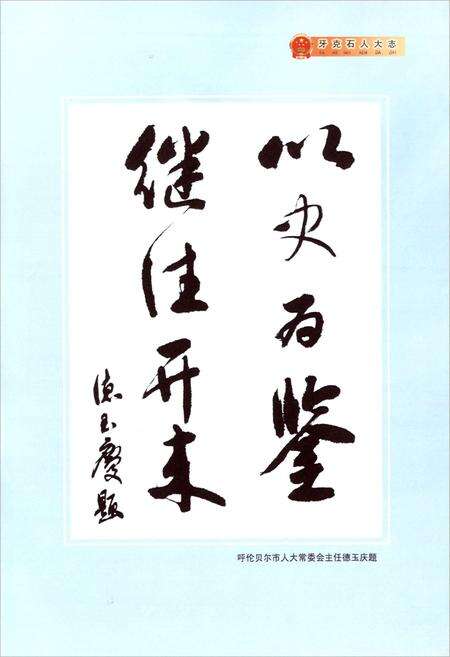 牙克石人大志
YA KE SHI REN DA ZHI
以史为鉴
继往开来
德玉慶题
呼伦贝尔市人大常委会主任德玉庆题